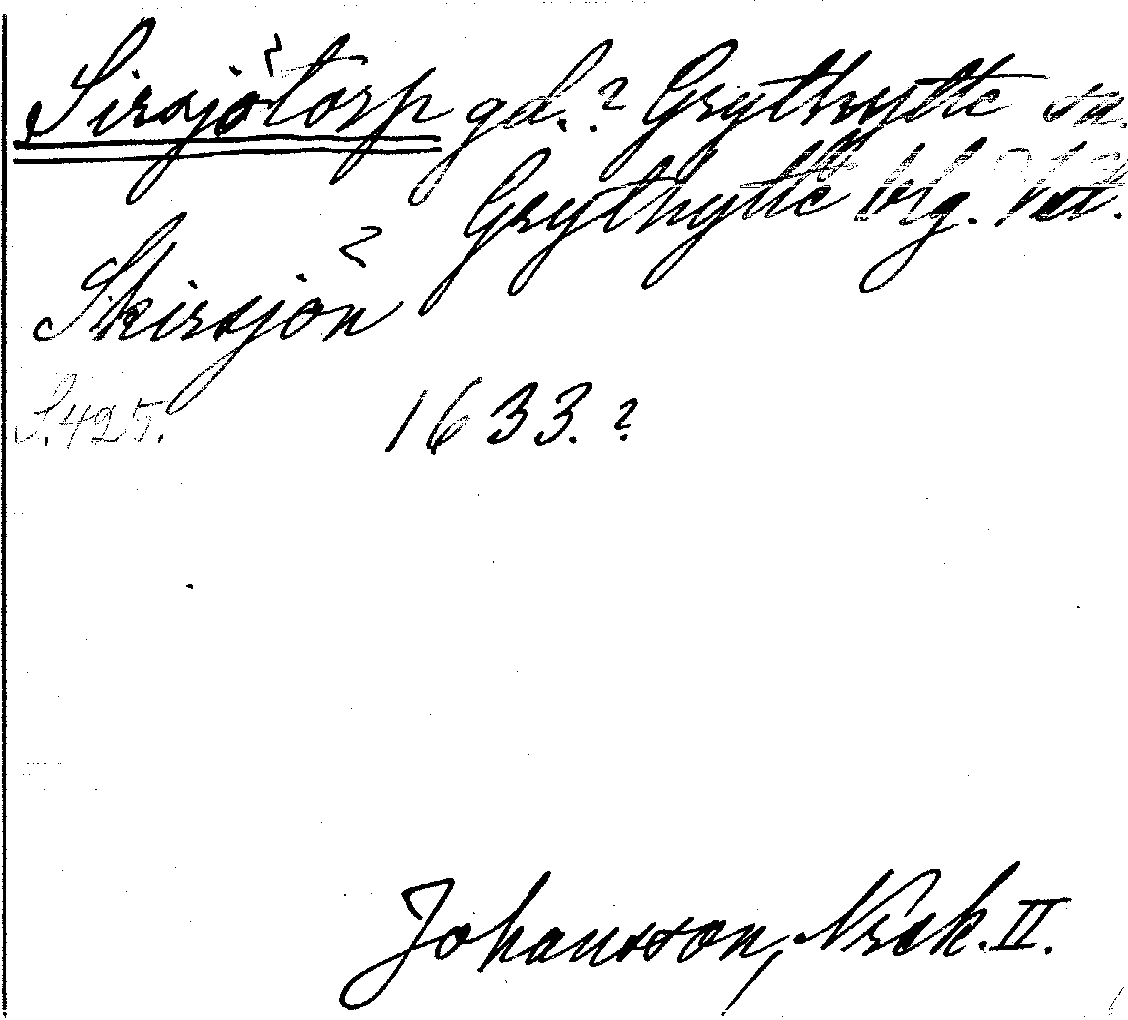 Sirsjötorp gd.? Grythytte sn.
Grythytte brg.
Skirsjön
S. 425. 1633.?
Johansson, Nrck. II.